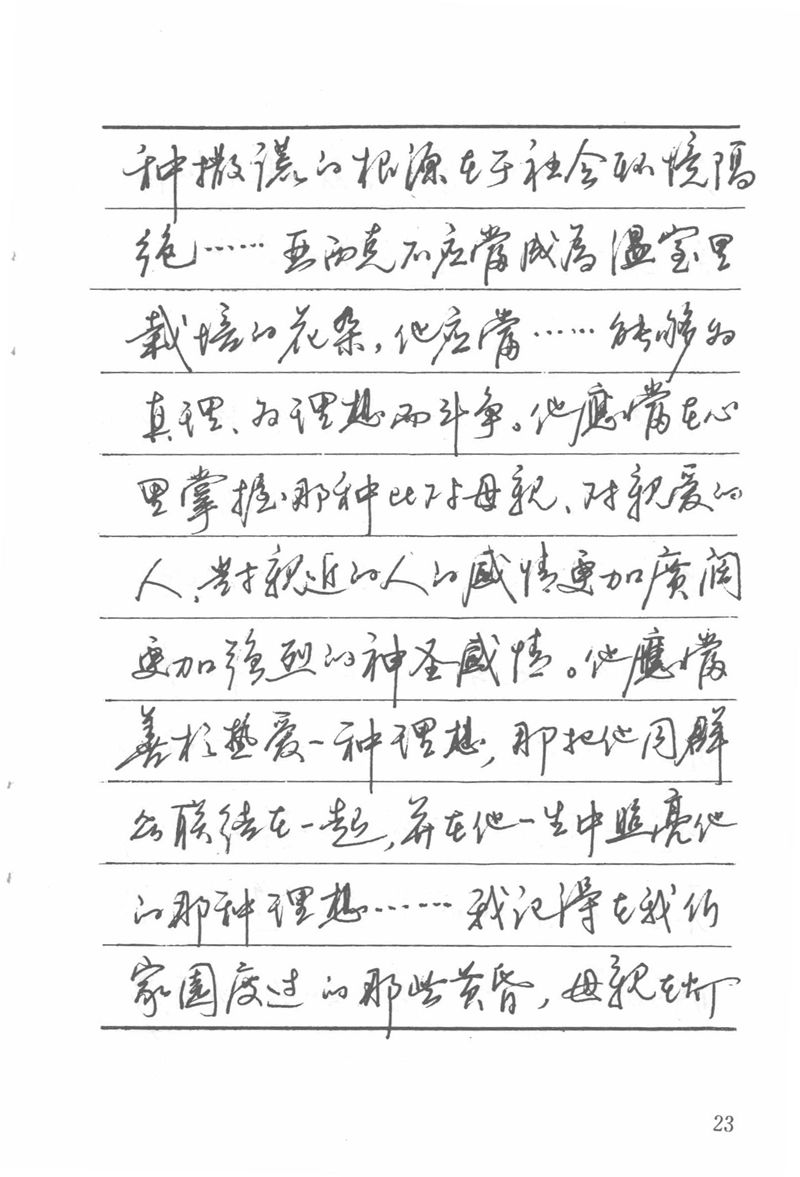 种撒谎的根源在于社会环境隔
绝……亚西克不应当成為温室里
栽培的花朵，他应當……能够为
真理、为理想而斗争。他應當在心
里掌握那种比对母親、对親爱的
人、對親近的人的感情更加廣阔
更加强烈的神圣感情。他應當
善於热爱一种理想，那把他同群
众联结在一起，并在他一生中照亮他
的那种理想……我记得在我们
家園度过的那些黄昏，母親在灯
23